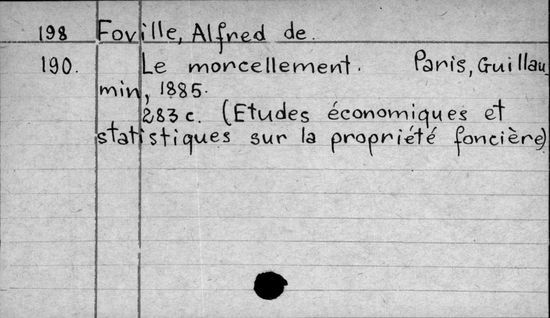 198 Foville, Alfred de.
190. Le morcellement. Paris, Guillau
min, 1885.
283 c. (Etudes économiques et
statistiques sur la propriété foncière)